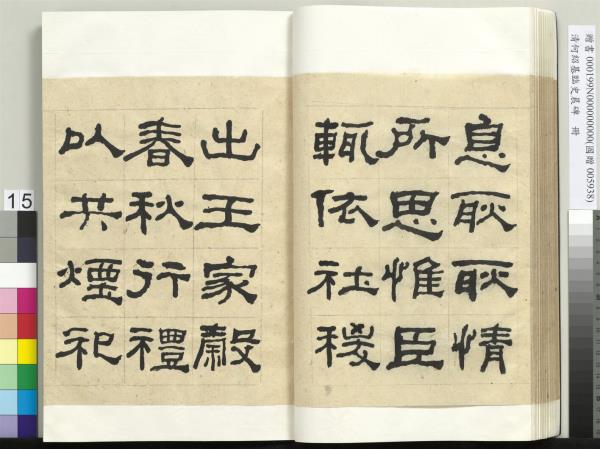 息耿耿情
所思惟臣
輒依社稷
出王家穀
春秋行禮
以共煙祀
贈書 000199N000000000(國贈 005938)
清何紹基臨史晨碑 冊
15